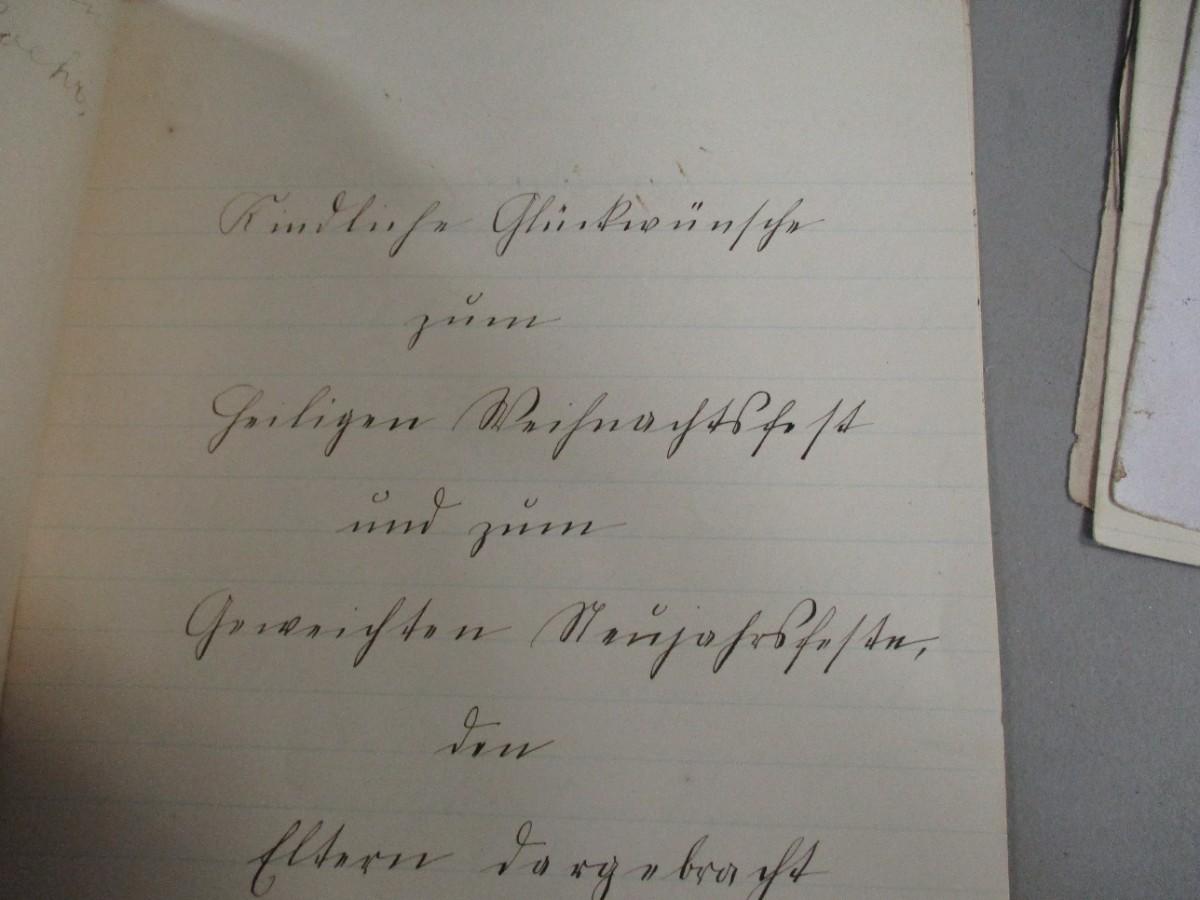 Kindliche Glückwünsche
zum
Heiligen Weihnachtsfest
und zum
Geweichten Neujahrsfeste,
den
Eltern dargebracht